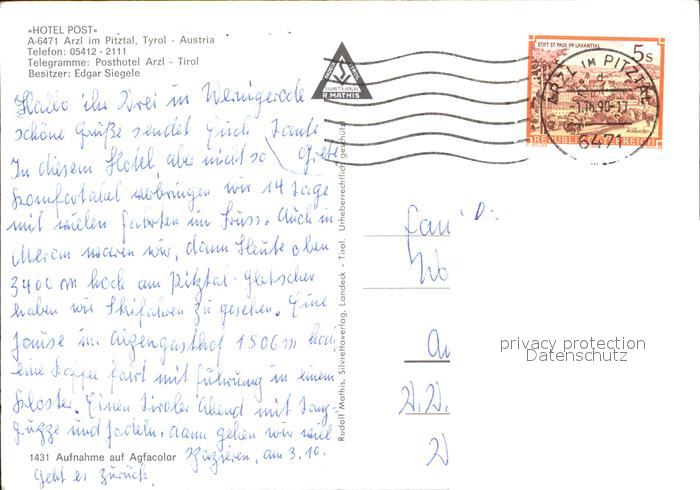 »HOTEL POST«
A-6471 Arzl im Pitztal, Tyrol - Austria
Telefon: 05412 - 2111
Telegramme: Posthotel Arzl - Tirol
Besitzer: Edgar Siegele
Hallo ihr Drei in Wernigerode
schöne Grüße sendet Euch Tante
Grete
In diesem Hotel aber nicht so
komfortabel verbringen wir 14 Tage
mit vielen Fahrten im Bus. Auch in
Meran waren wir, dann Heute oben
3400 m hoch am Pitztal-Gletscher
haben wir Skifahren zu gesehen. Eine
Jause im Alpengasthof 1506 m hoch,
eine fart mit Führung in einem
Kloster. Einen Tiroler Abend mit Tanz-
gruppe und Jodeln, dann gehen wir viel
spazieren, am 3.10.
geht es zurück.
1431 Aufnahme auf Agfacolor
Rudolf Mathis, Silvrettaverlag, Landeck - Tirol. Urheberrechtlich geschützt
SILVRETTA VERLAG
R. MATHIS
STIFT ST. PAUL IM LAVANTTAL
5 S
REPUBLIK ÖSTERREICH
ARZL IM PITZTAL
6471
privacy protection
Datenschutz